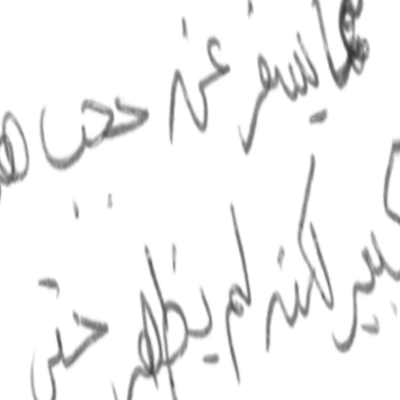 مما يسفر عن حجب
كبير لكنه لم يظهر حتى